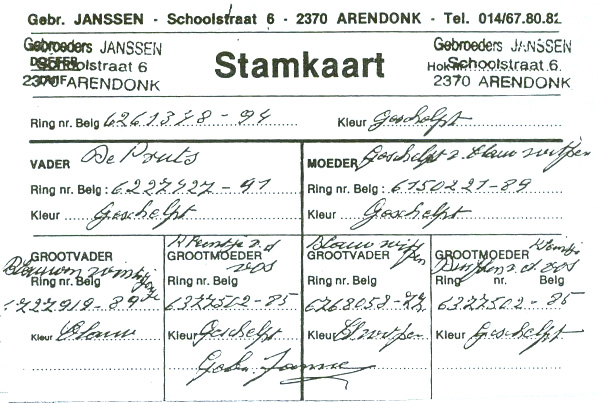 Gebr. JANSSEN - Schoolstraat 6 - 2370 ARENDONK - Tel. 014/67.80.82
Gebroeders JANSSEN
Schoolstraat 6
2370 ARENDONK
Stamkaart
Gebroeders JANSSEN
Schoolstraat 6.
2370 ARENDONK
Ring nr. Belg 6261378-94 Kleur Geschelpt
VADER De Pruts
Ring nr. Belg : 6227427-91
Kleur Geschelpt
MOEDER Geschelpt v. blauw witpen
Ring nr. Belg : 6150221-89
Kleur Geschelpt
GROOTVADER
Ring nr. Belg
1727919-89
Kleur Blauw
GROOTMOEDER v.d. vos
Ring nr. Belg
6327502-85
Kleur Geschelpt
Blauw
GROOTVADER
Ring nr. Belg
Kleur
GROOTMOEDER v.d. vos
Ring nr. Belg
6327502-85
Kleur Geschelpt